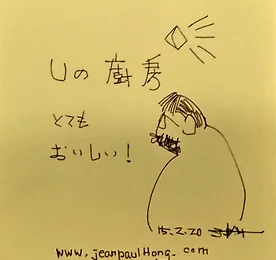 Uの廚房
とても
おいしい!
15.2.20
www.jeanpaulHong.com